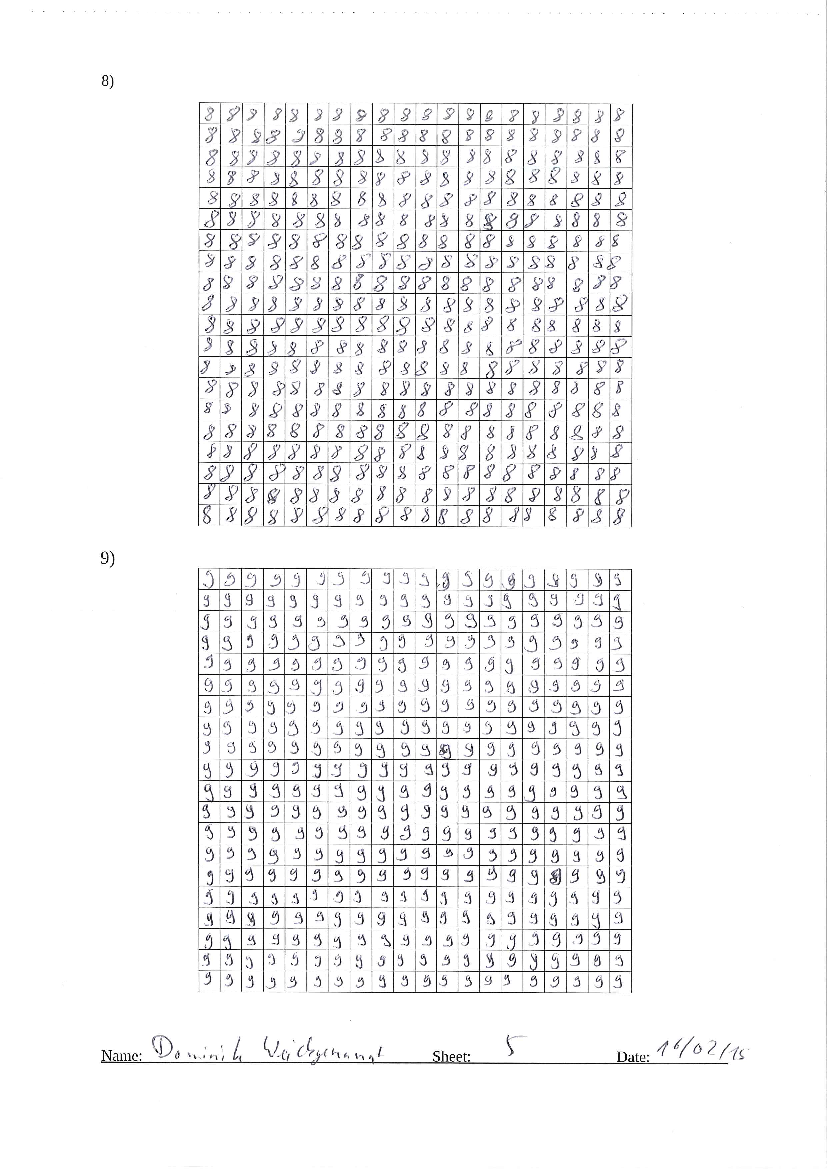 8)
8 8 8 8 8 8 8 8 8 8 8 8 8 8 8 8 8 8 8 8
8 8 8 8 8 8 8 8 8 8 8 8 8 8 8 8 8 8 8 8
8 8 8 8 8 8 8 8 8 8 8 8 8 8 8 8 8 8 8 8
8 8 8 8 8 8 8 8 8 8 8 8 8 8 8 8 8 8 8 8
8 8 8 8 8 8 8 8 8 8 8 8 8 8 8 8 8 8 8 8
8 8 8 8 8 8 8 8 8 8 8 8 8 8 8 8 8 8 8 8
8 8 8 8 8 8 8 8 8 8 8 8 8 8 8 8 8 8 8 8
8 8 8 8 8 8 8 8 8 8 8 8 8 8 8 8 8 8 8 8
8 8 8 8 8 8 8 8 8 8 8 8 8 8 8 8 8 8 8 8
8 8 8 8 8 8 8 8 8 8 8 8 8 8 8 8 8 8 8 8
8 8 8 8 8 8 8 8 8 8 8 8 8 8 8 8 8 8 8 8
8 8 8 8 8 8 8 8 8 8 8 8 8 8 8 8 8 8 8 8
8 8 8 8 8 8 8 8 8 8 8 8 8 8 8 8 8 8 8 8
8 8 8 8 8 8 8 8 8 8 8 8 8 8 8 8 8 8 8 8
8 8 8 8 8 8 8 8 8 8 8 8 8 8 8 8 8 8 8 8
8 8 8 8 8 8 8 8 8 8 8 8 8 8 8 8 8 8 8 8
8 8 8 8 8 8 8 8 8 8 8 8 8 8 8 8 8 8 8 8
8 8 8 8 8 8 8 8 8 8 8 8 8 8 8 8 8 8 8 8
8 8 8 8 8 8 8 8 8 8 8 8 8 8 8 8 8 8 8 8
8 8 8 8 8 8 8 8 8 8 8 8 8 8 8 8 8 8 8 8
9)
9 9 9 9 9 9 9 9 9 9 9 9 9 9 9 9 9 9 9 9
9 9 9 9 9 9 9 9 9 9 9 9 9 9 9 9 9 9 9 9
9 9 9 9 9 9 9 9 9 9 9 9 9 9 9 9 9 9 9 9
9 9 9 9 9 9 9 9 9 9 9 9 9 9 9 9 9 9 9 9
9 9 9 9 9 9 9 9 9 9 9 9 9 9 9 9 9 9 9 9
9 9 9 9 9 9 9 9 9 9 9 9 9 9 9 9 9 9 9 9
9 9 9 9 9 9 9 9 9 9 9 9 9 9 9 9 9 9 9 9
9 9 9 9 9 9 9 9 9 9 9 9 9 9 9 9 9 9 9 9
9 9 9 9 9 9 9 9 9 9 9 9 9 9 9 9 9 9 9 9
9 9 9 9 9 9 9 9 9 9 9 9 9 9 9 9 9 9 9 9
9 9 9 9 9 9 9 9 9 9 9 9 9 9 9 9 9 9 9 9
9 9 9 9 9 9 9 9 9 9 9 9 9 9 9 9 9 9 9 9
9 9 9 9 9 9 9 9 9 9 9 9 9 9 9 9 9 9 9 9
9 9 9 9 9 9 9 9 9 9 9 9 9 9 9 9 9 9 9 9
9 9 9 9 9 9 9 9 9 9 9 9 9 9 9 9 9 9 9 9
9 9 9 9 9 9 9 9 9 9 9 9 9 9 9 9 9 9 9 9
9 9 9 9 9 9 9 9 9 9 9 9 9 9 9 9 9 9 9 9
9 9 9 9 9 9 9 9 9 9 9 9 9 9 9 9 9 9 9 9
9 9 9 9 9 9 9 9 9 9 9 9 9 9 9 9 9 9 9 9
9 9 9 9 9 9 9 9 9 9 9 9 9 9 9 9 9 9 9 9
Name: Dominik Sheet: 5 Date: 16/02/15